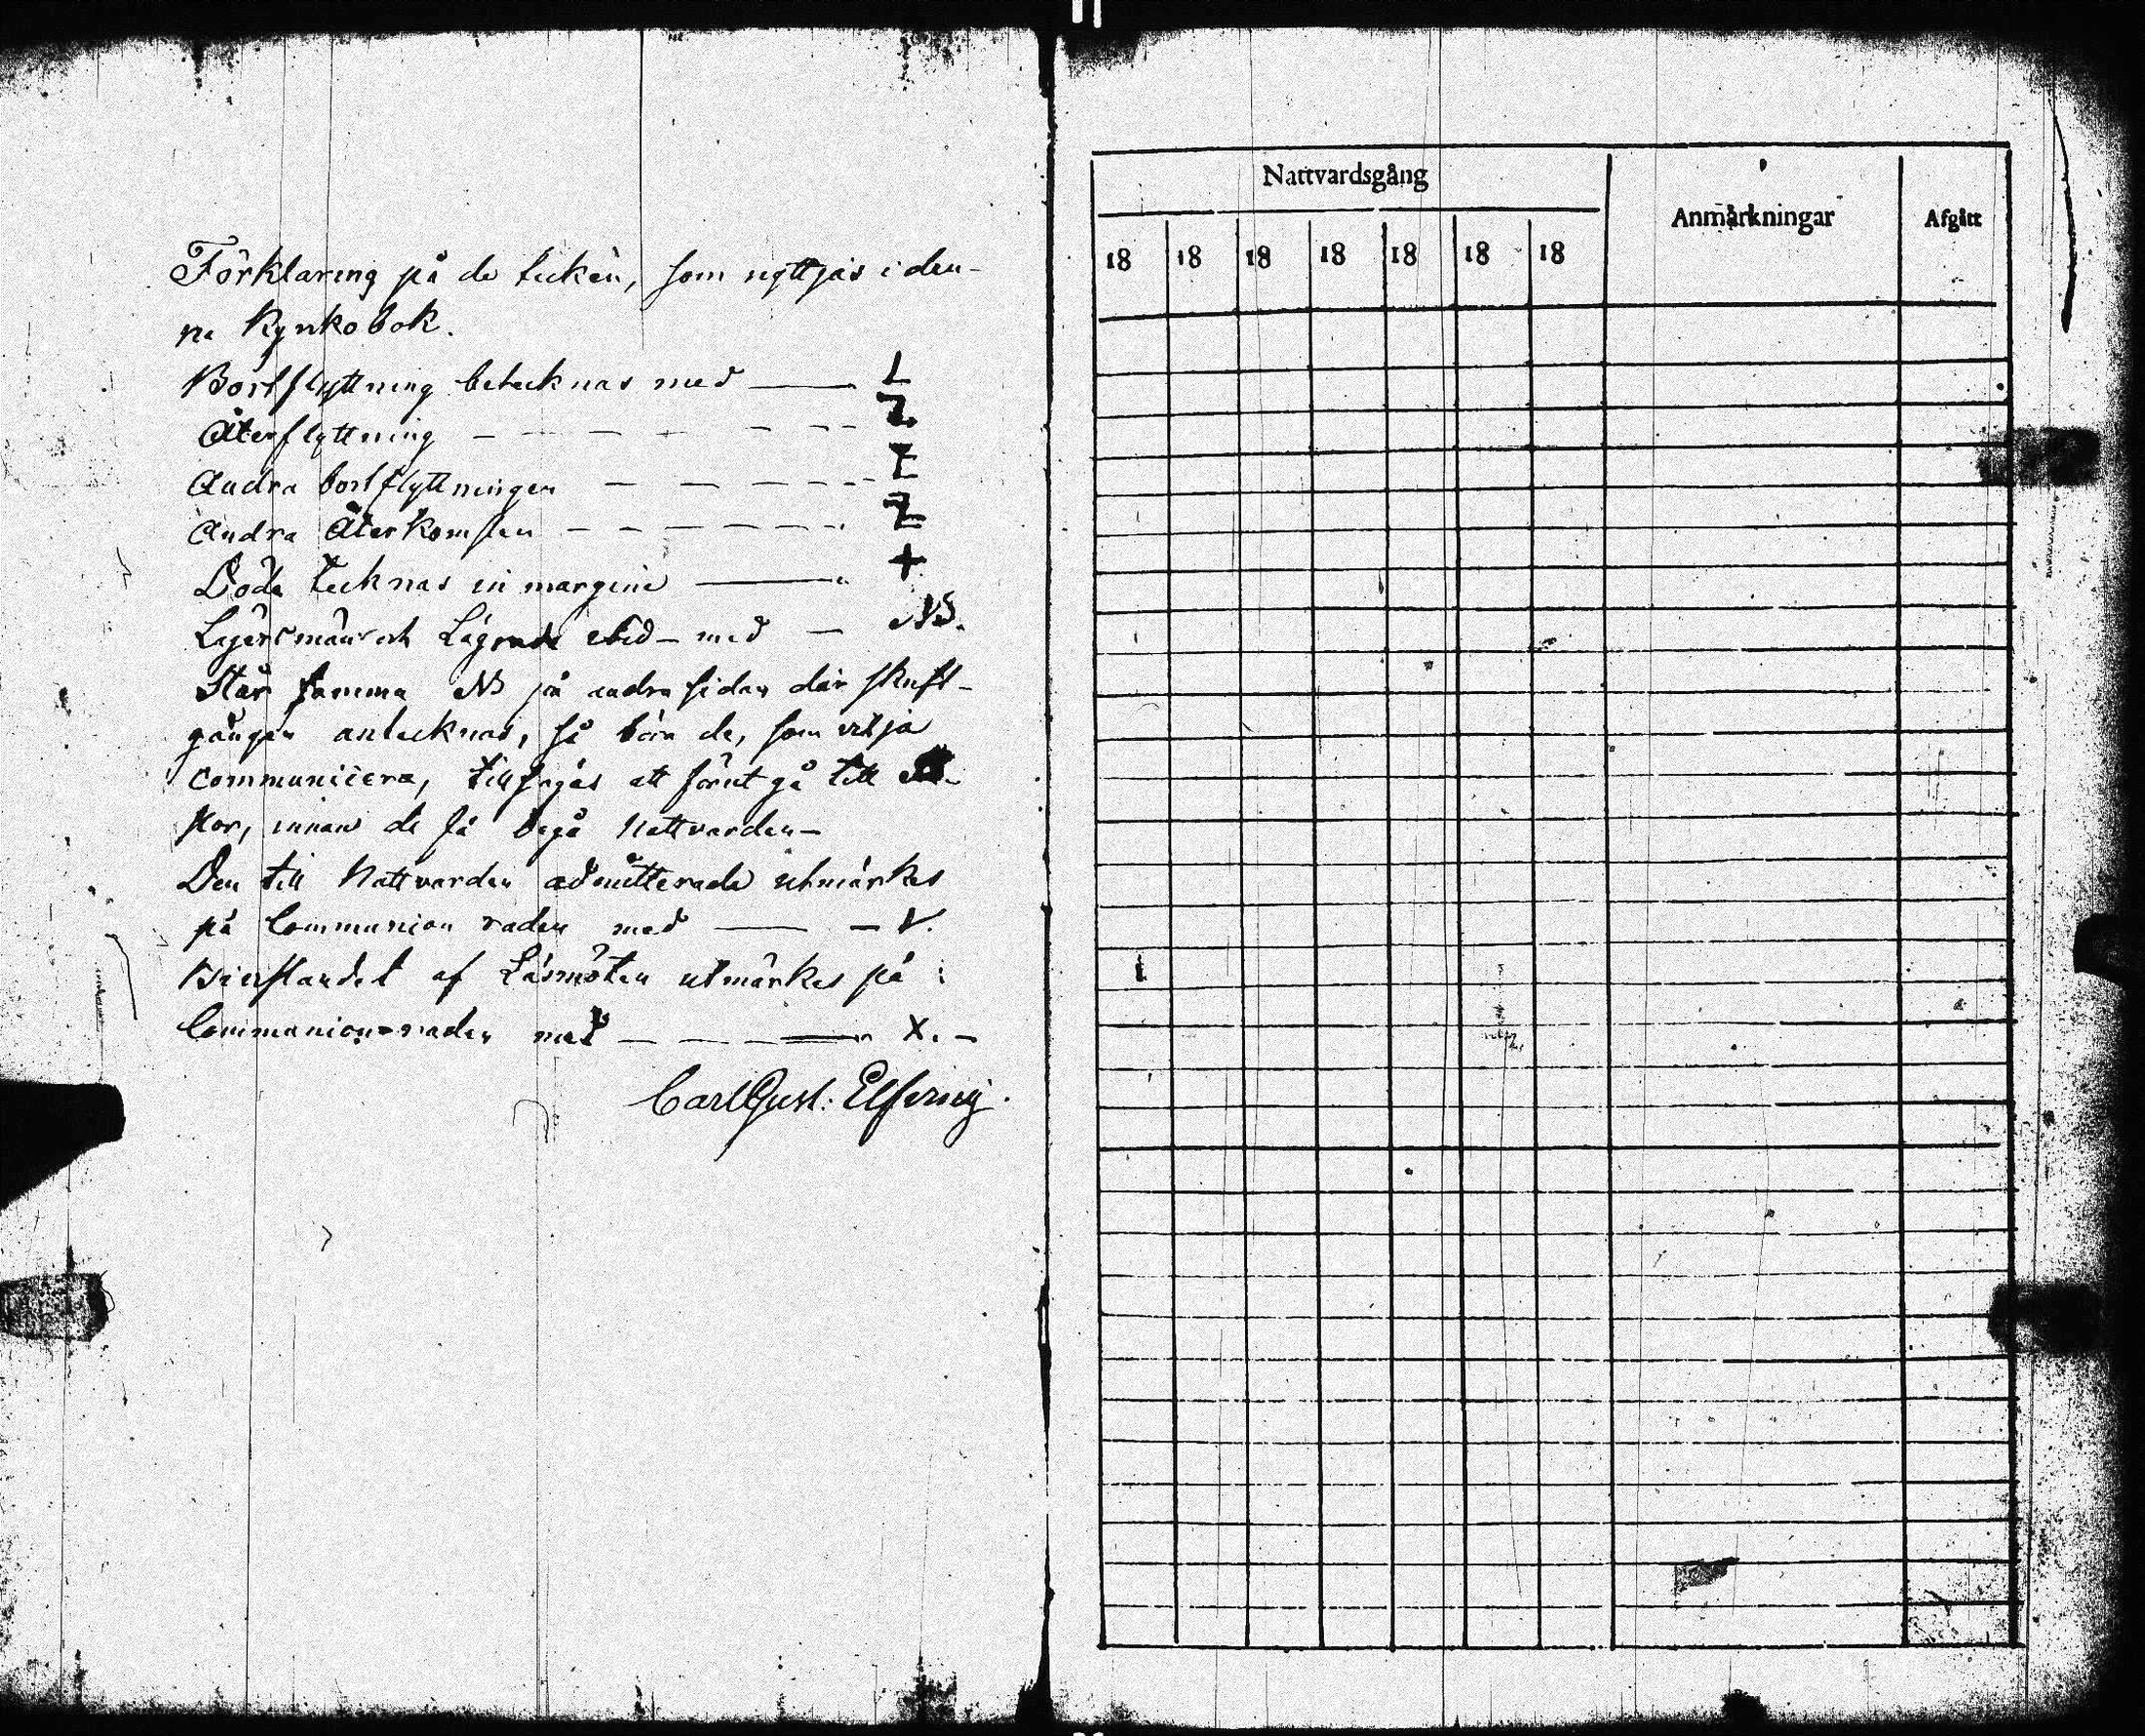 Förklaring på de tecken, som nyttjas i den-
na Kyrkobok.
Bortflyttning betecknas med — L
Återflyttning - - - - - - Z
Andra bortflyttningen - - - - - Ł
Andra Återkomsten - - - - - - Ƶ
Döda tecknas in margine — +
Lägersmän och Lägrade med — NB.
Står samma NB på andra sidan där skrift-
gången antecknas, så böra de, som vilja
communicera, tillsägas att förut gå till
innan de få begå Nattvarden —
Den till Nattvarden admitterade utmärkes
på Communion raden med — — V.
Bevistandet af Läsmöten utmärkes på
Communion-raden med - - - — X. —
Carl Gust: Elfving.
Nattvardsgång
Anmärkningar
Afgått
18 18 18 18 18 18 18